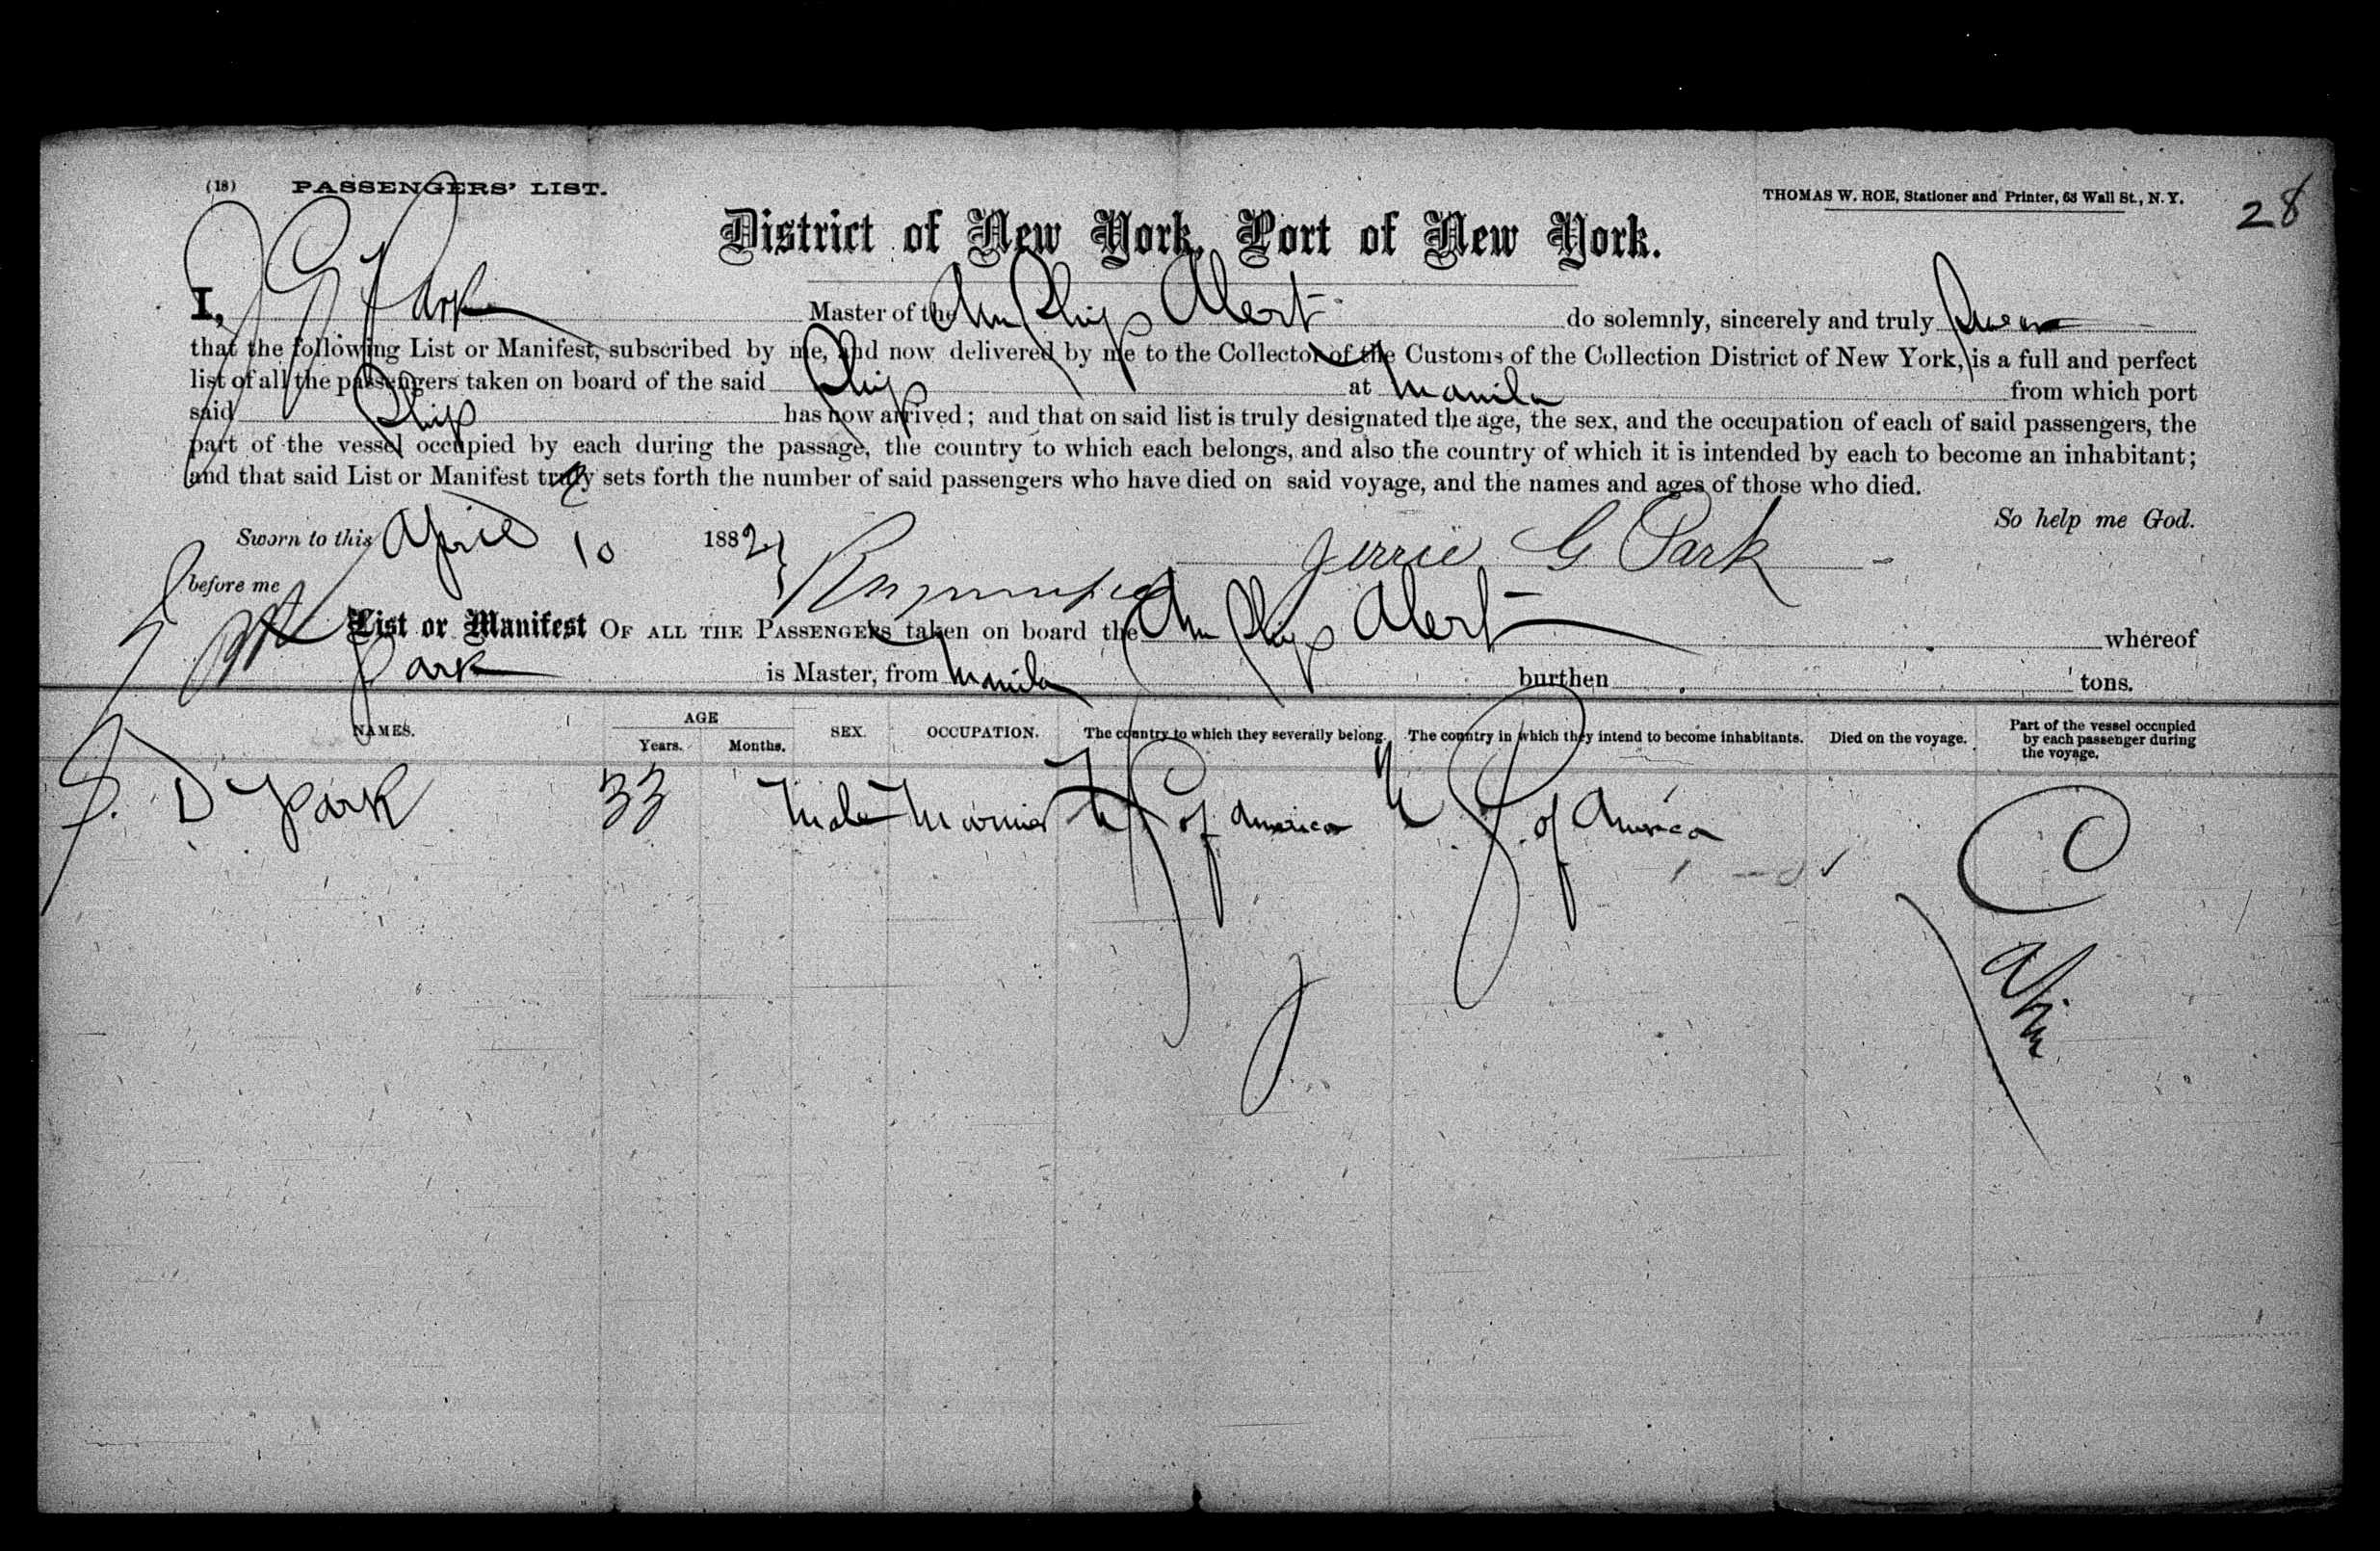 (18) PASSENGERS' LIST.
THOMAS W. ROE, Stationer and Printer, 63 Wall St., N. Y.
28
District of New York, Port of New York.
I, J G Park Master of the Am Ship Alert do solemnly, sincerely and truly swear
that the following List or Manifest, subscribed by me, and now delivered by me to the Collector of the Customs of the Collection District of New York, is a full and perfect
list of all the passengers taken on board of the said Ship at Manila from which port
said Ship has now arrived; and that on said list is truly designated the age, the sex, and the occupation of each of said passengers, the
part of the vessel occupied by each during the passage, the country to which each belongs, and also the country of which it is intended by each to become an inhabitant;
and that said List or Manifest truly sets forth the number of said passengers who have died on said voyage, and the names and ages of those who died.
So help me God.
Sworn to this April 10 1882
Jerrie G Park
before me
List or Manifest OF ALL THE PASSENGERS taken on board the Am Ship Alert whereof
Park is Master, from Manila burthen tons.
NAMES. AGE Years. Months. SEX. OCCUPATION. The country to which they severally belong. The country in which they intend to become inhabitants. Died on the voyage. Part of the vessel occupied by each passenger during the voyage.
D Park 33 Male Mariner U S of America U S. of America Cabin